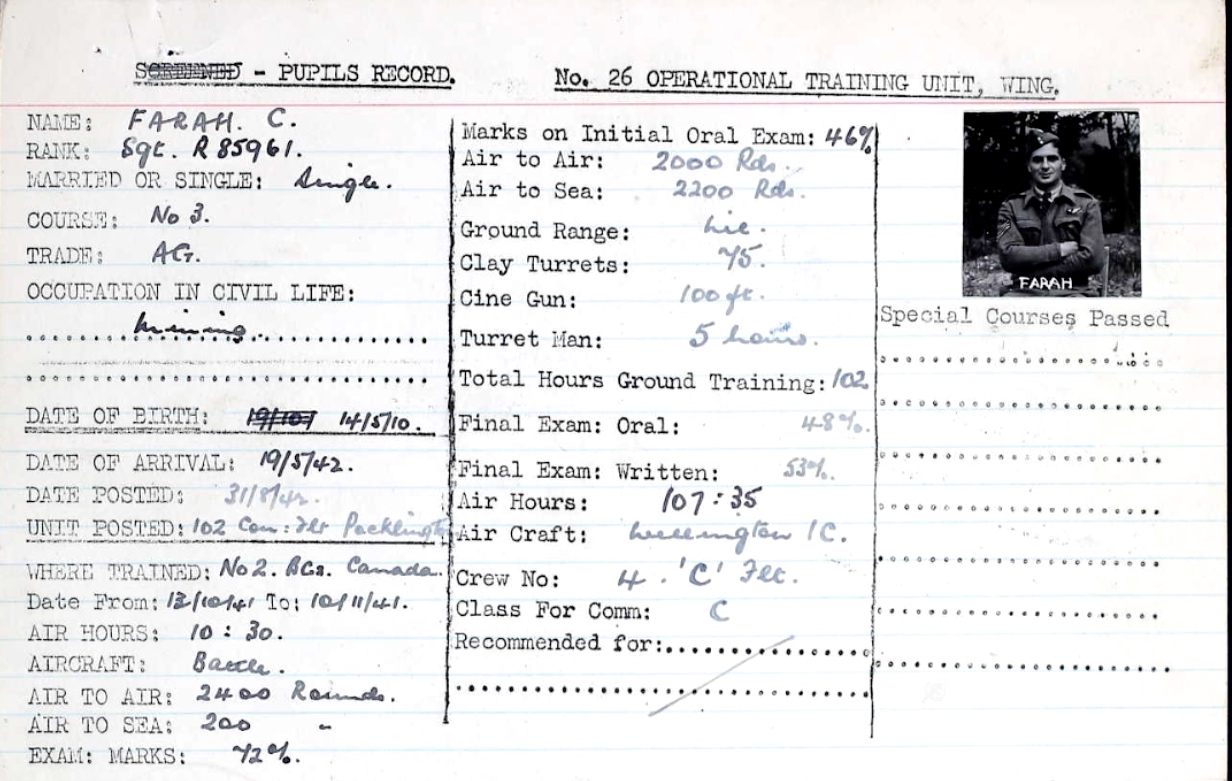 SCREENED - PUPILS RECORD.
No. 26 OPERATIONAL TRAINING UNIT, WING.
NAME: FARAH. C.
RANK: Sgt. R 85961.
MARRIED OR SINGLE: Single.
COURSE: No 3.
TRADE: AG.
OCCUPATION IN CIVIL LIFE:
Mining
DATE OF BIRTH: 14/5/10.
DATE OF ARRIVAL: 19/5/42.
DATE POSTED: 31/8/42.
UNIT POSTED: 102 Con: Flt Pocklington
WHERE TRAINED: No 2. BGS. Canada.
Date From: 13/10/41 To: 10/11/41.
AIR HOURS: 10 : 30.
AIRCRAFT: Battle.
AIR TO AIR: 2400 Rounds.
AIR TO SEA: 200 "
EXAM: MARKS: 72%.
Marks on Initial Oral Exam: 46%
Air to Air: 2000 Rds.
Air to Sea: 2200 Rds.
Ground Range: Nil.
Clay Turrets: 75.
Cine Gun: 100 ft.
Turret Man: 5 hours.
Total Hours Ground Training: 102
Final Exam: Oral: 48%.
Final Exam: Written: 53%.
Air Hours: 107 : 35
Air Craft: Wellington IC.
Crew No: 4. 'C' Flt.
Class For Comm: C
Recommended for:
FARAH
Special Courses Passed